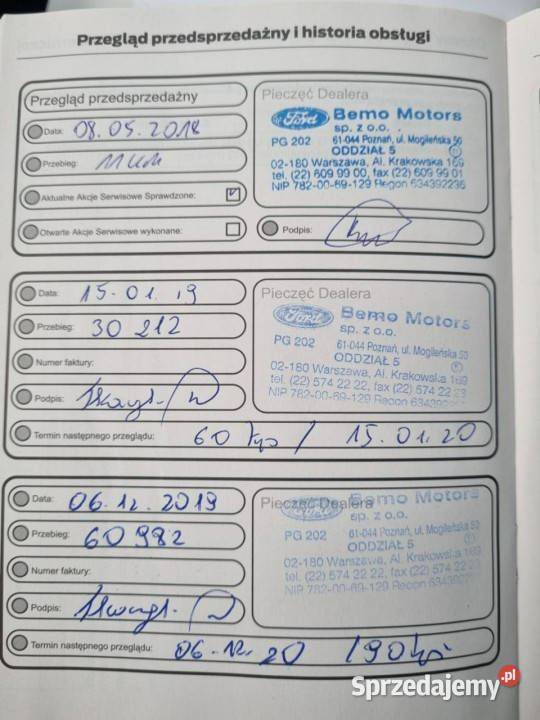 Przegląd przedsprzedażny i historia obsługi
Przegląd przedsprzedażny
Data: 08.05.2018
Przebieg: 11 km
Aktualne Akcje Serwisowe Sprawdzone:
Otwarte Akcje Serwisowe wykonane:
Pieczęć Dealera
Ford Bemo Motors
sp. z o.o.
PG 202 61-044 Poznań, ul. Mogileńska 50
ODDZIAŁ 5
02-180 Warszawa, Al. Krakowska 169
tel. (22) 609 99 00, fax (22) 609 99 01
NIP 782-00-69-129 Regon 634392236
Podpis:
Data: 15-01.19
Przebieg: 30 212
Numer faktury:
Podpis:
Pieczęć Dealera
Ford Bemo Motors
sp. z o.o.
PG 202 61-044 Poznań, ul. Mogileńska 50
ODDZIAŁ 5
02-180 Warszawa, Al. Krakowska 169
tel. (22) 574 22 22, fax (22) 574 22
NIP 782-00-69-129 Regon
Termin następnego przeglądu: 60 tys / 15.01.20
Data: 06.12.2019
Przebieg: 60 982
Numer faktury:
Podpis:
Pieczęć Dealera
Bemo Motors
sp. z o.o.
PG 202 61-044 Poznań, ul. Mogileńska 50
ODDZIAŁ 5
02-180 Warszawa, Al. Krakowska
tel. (22) 574 22 22, fax (22) 574 22
NIP 782-00-69-129 Regon
Termin następnego przeglądu: 06.12.20 / 90 tys
Sprzedajemy.pl